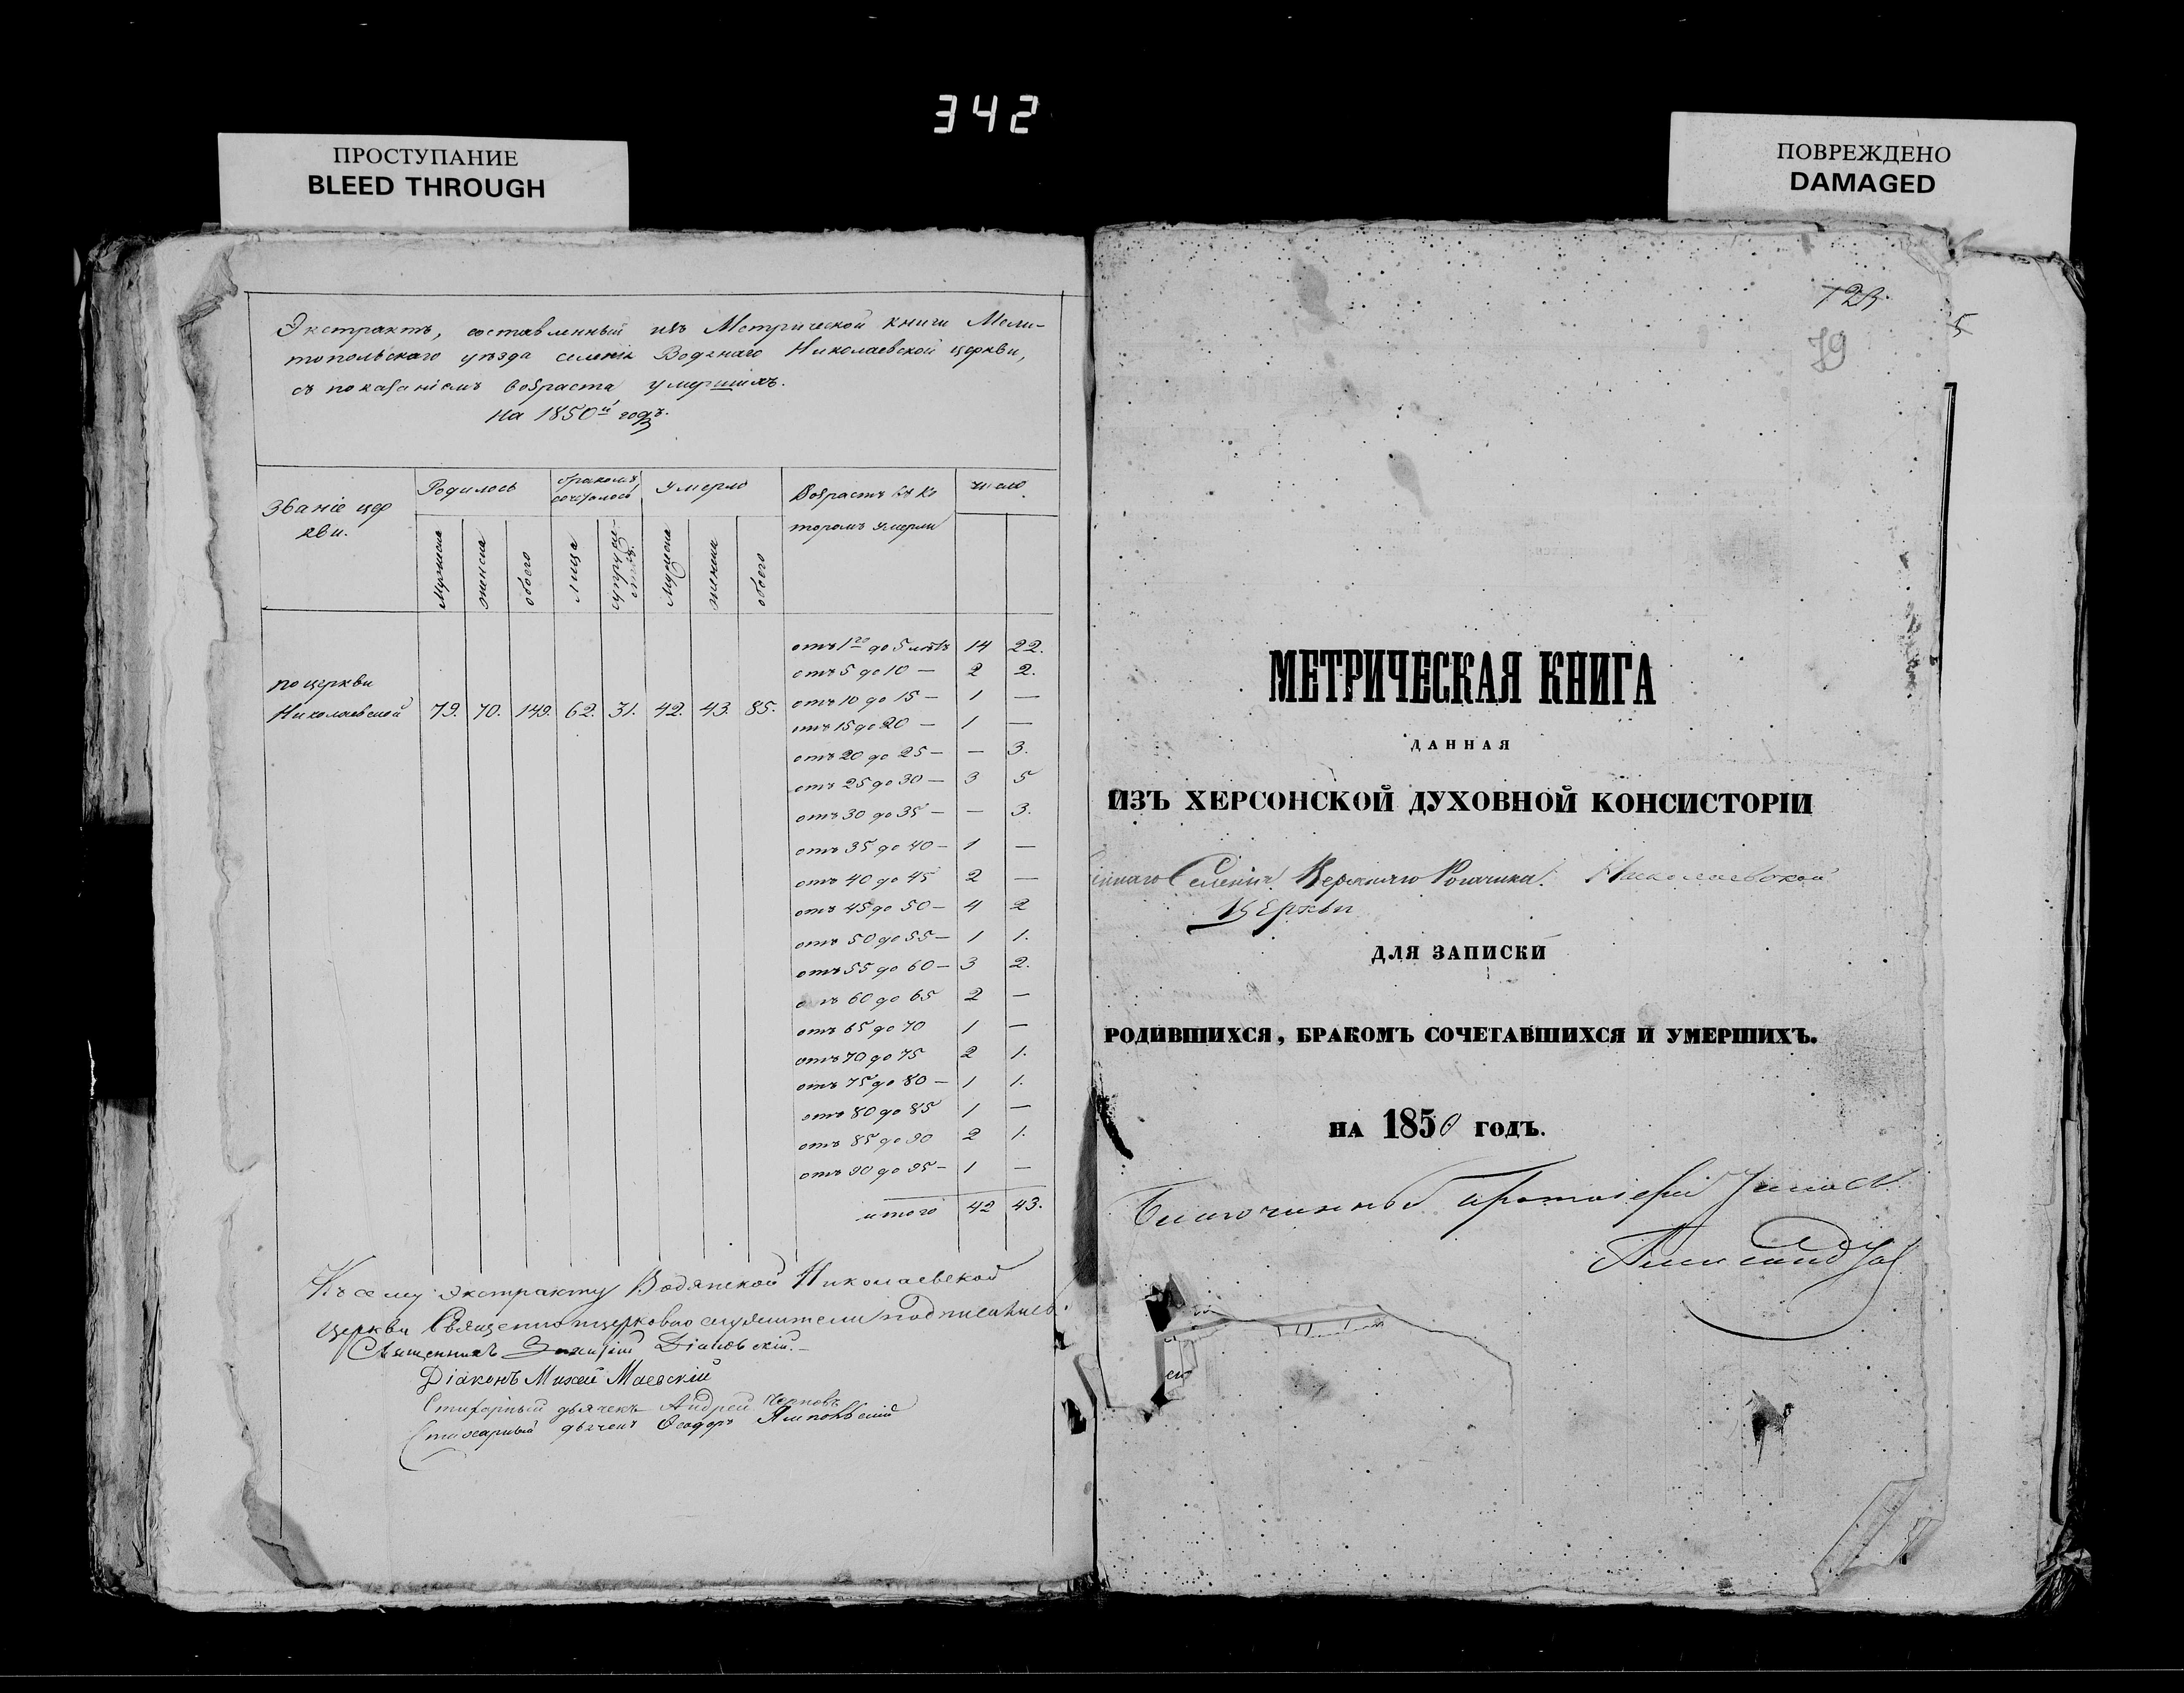 342
ПРОСТУПАНИЕ
BLEED THROUGH
ПОВРЕЖДЕНО
DAMAGED
Экстрактъ, составленный изъ Метрической книги Мели-
топольскаго уѣзда селенія Водянаго Николаевской церкви,
съ показаніемъ возраста умершихъ.
на 1850й годъ.
Званіе цер
кви.
Родилось
бракомъ сочеталось
Умерло
Возрастъ въ ко
торомъ умерли
число
мужеска
женска
обоего
лица
супруже-
ства
мужеска
женска
обоего
по церкви
Николаевской 79. 70. 149. 62. 31. 42. 43. 85.
отъ 1го до 5 лѣтъ 14 22.
отъ 5 до 10 — 2 2.
отъ 10 до 15 — 1 —
отъ 15 до 20 — 1 —
отъ 20 до 25 — — 3.
отъ 25 до 30 — 3 5
отъ 30 до 35 — — 3.
отъ 35 до 40 — 1 —
отъ 40 до 45 2 —
отъ 45 до 50 — 4 2
отъ 50 до 55 — 1 1.
отъ 55 до 60 — 3 2.
отъ 60 до 65 2 —
отъ 65 до 70 1 —
отъ 70 до 75 2 1.
отъ 75 до 80 — 1 1.
отъ 80 до 85 1 —
отъ 85 до 90 2 1.
отъ 90 до 95 — 1 —
итого 42 43.
Къ сему экстракту Водянской Николаевской
церкви Священноицерковнослужители подписались:
Священникъ Діановскій.
Діаконъ Михей Маевскій
Стихарный дьячекъ Андрей Черновъ
Стихарный дьячекъ Ѳеодоръ Ямпольскій
123.
79
5
МЕТРИЧЕСКАЯ КНИГА
ДАННАЯ
ИЗЪ ХЕРСОНСКОЙ ДУХОВНОЙ КОНСИСТОРІИ
Селенія Верхняго Рогачика. Николаевской
Церкви
ДЛЯ ЗАПИСКИ
РОДИВШИХСЯ, БРАКОМЪ СОЧЕТАВШИХСЯ И УМЕРШИХЪ.
НА 1850 ГОДЪ.
Благочинный Протоіерей